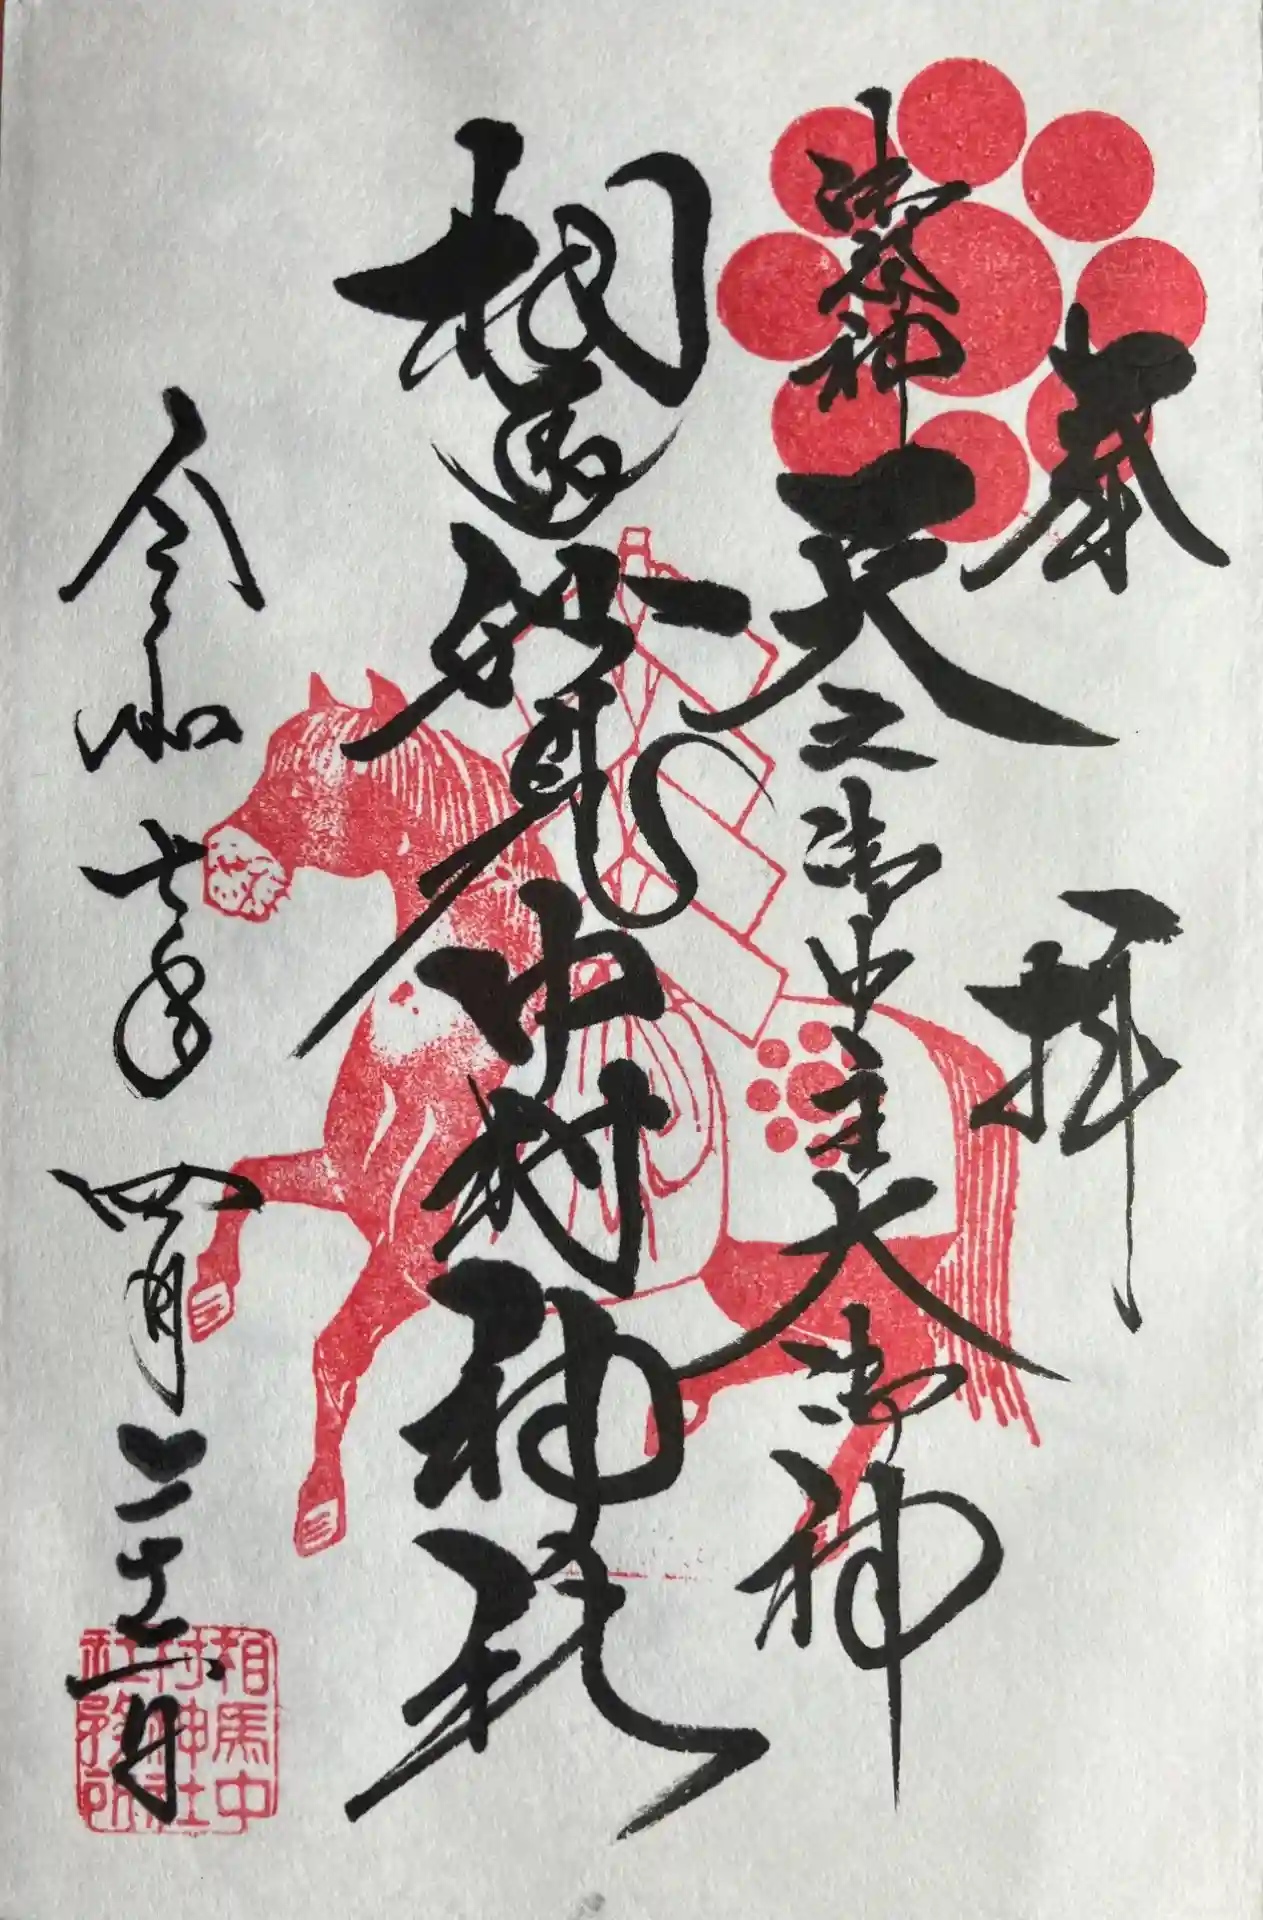 奉拝
御祭神 天之御中主大御神
相馬妙見中村神社
令和七年四月二十二日
相馬中
村神社
社務所